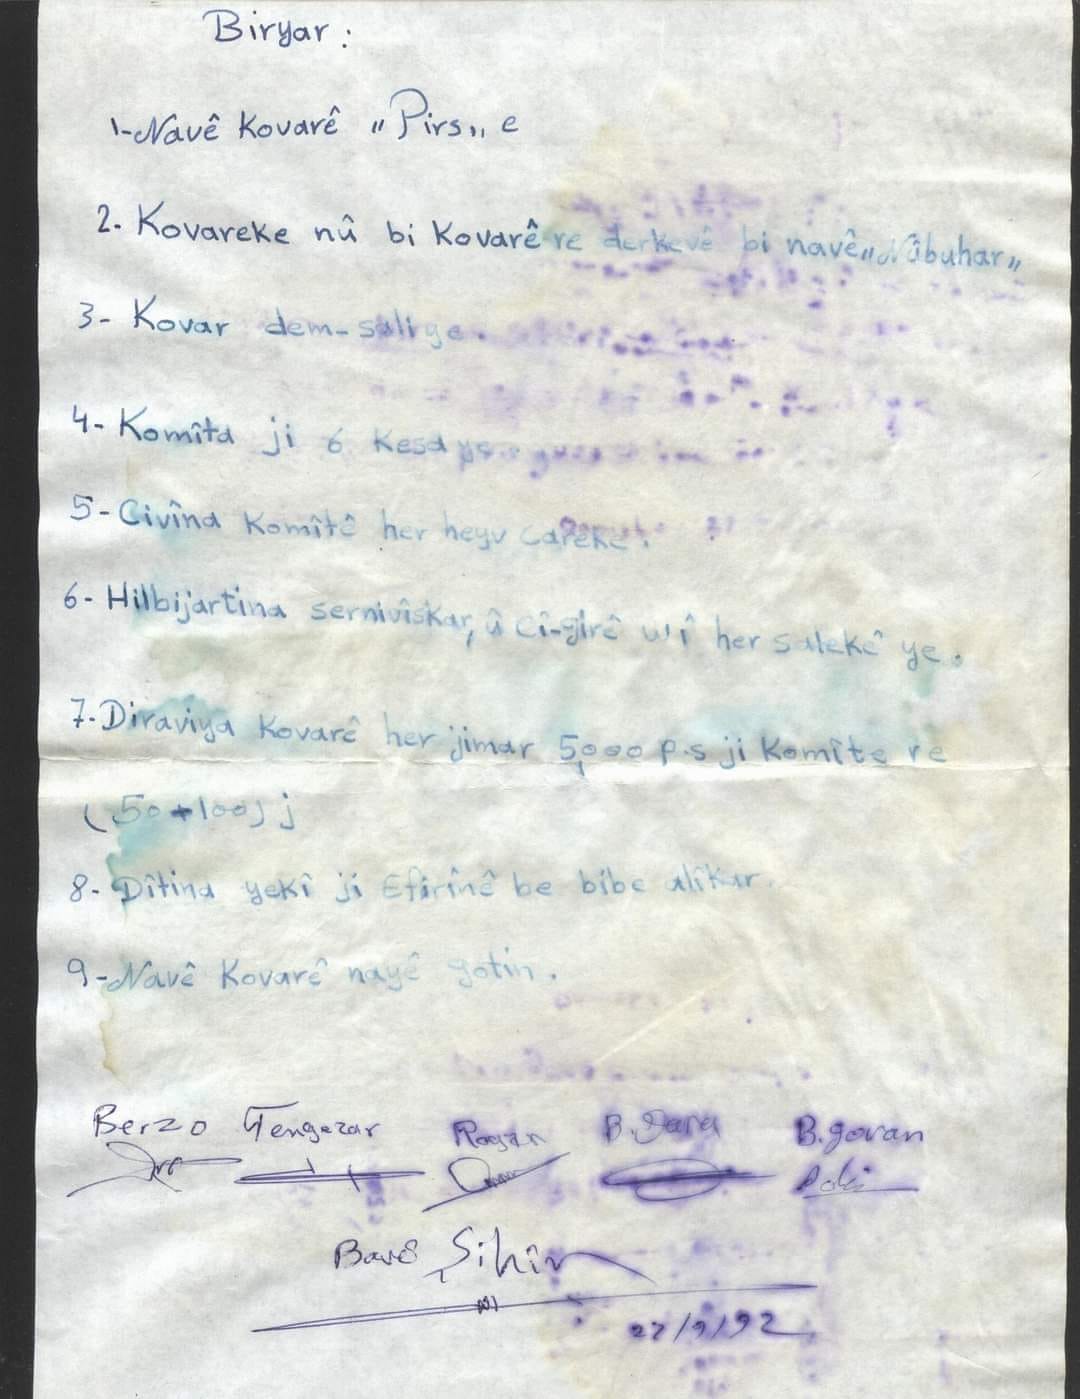 Biryar :
1-Navê Kovarê „Pirs„ e
2. Kovareke nû bi Kovarê re derkevê bi navê „Nûbuhar„
3- Kovar dem-saliye.
4- Komîta ji 6 Kesa
5- Civîna Komîtê her heyv careke.
6- Hilbijartina sernivîskar, û Cî-girê wî her salekê ye.
7. Diraviya Kovarê her jimar 5,000 p.s ji Komîte re
(50+100) j
8- Dîtina yekî ji Efirînê be bibe alîkar.
9-Navê Kovarê nayê gotin.
Berzo Tengezar Rojan B. B.govan
Bavê Şihîn
27/9/92